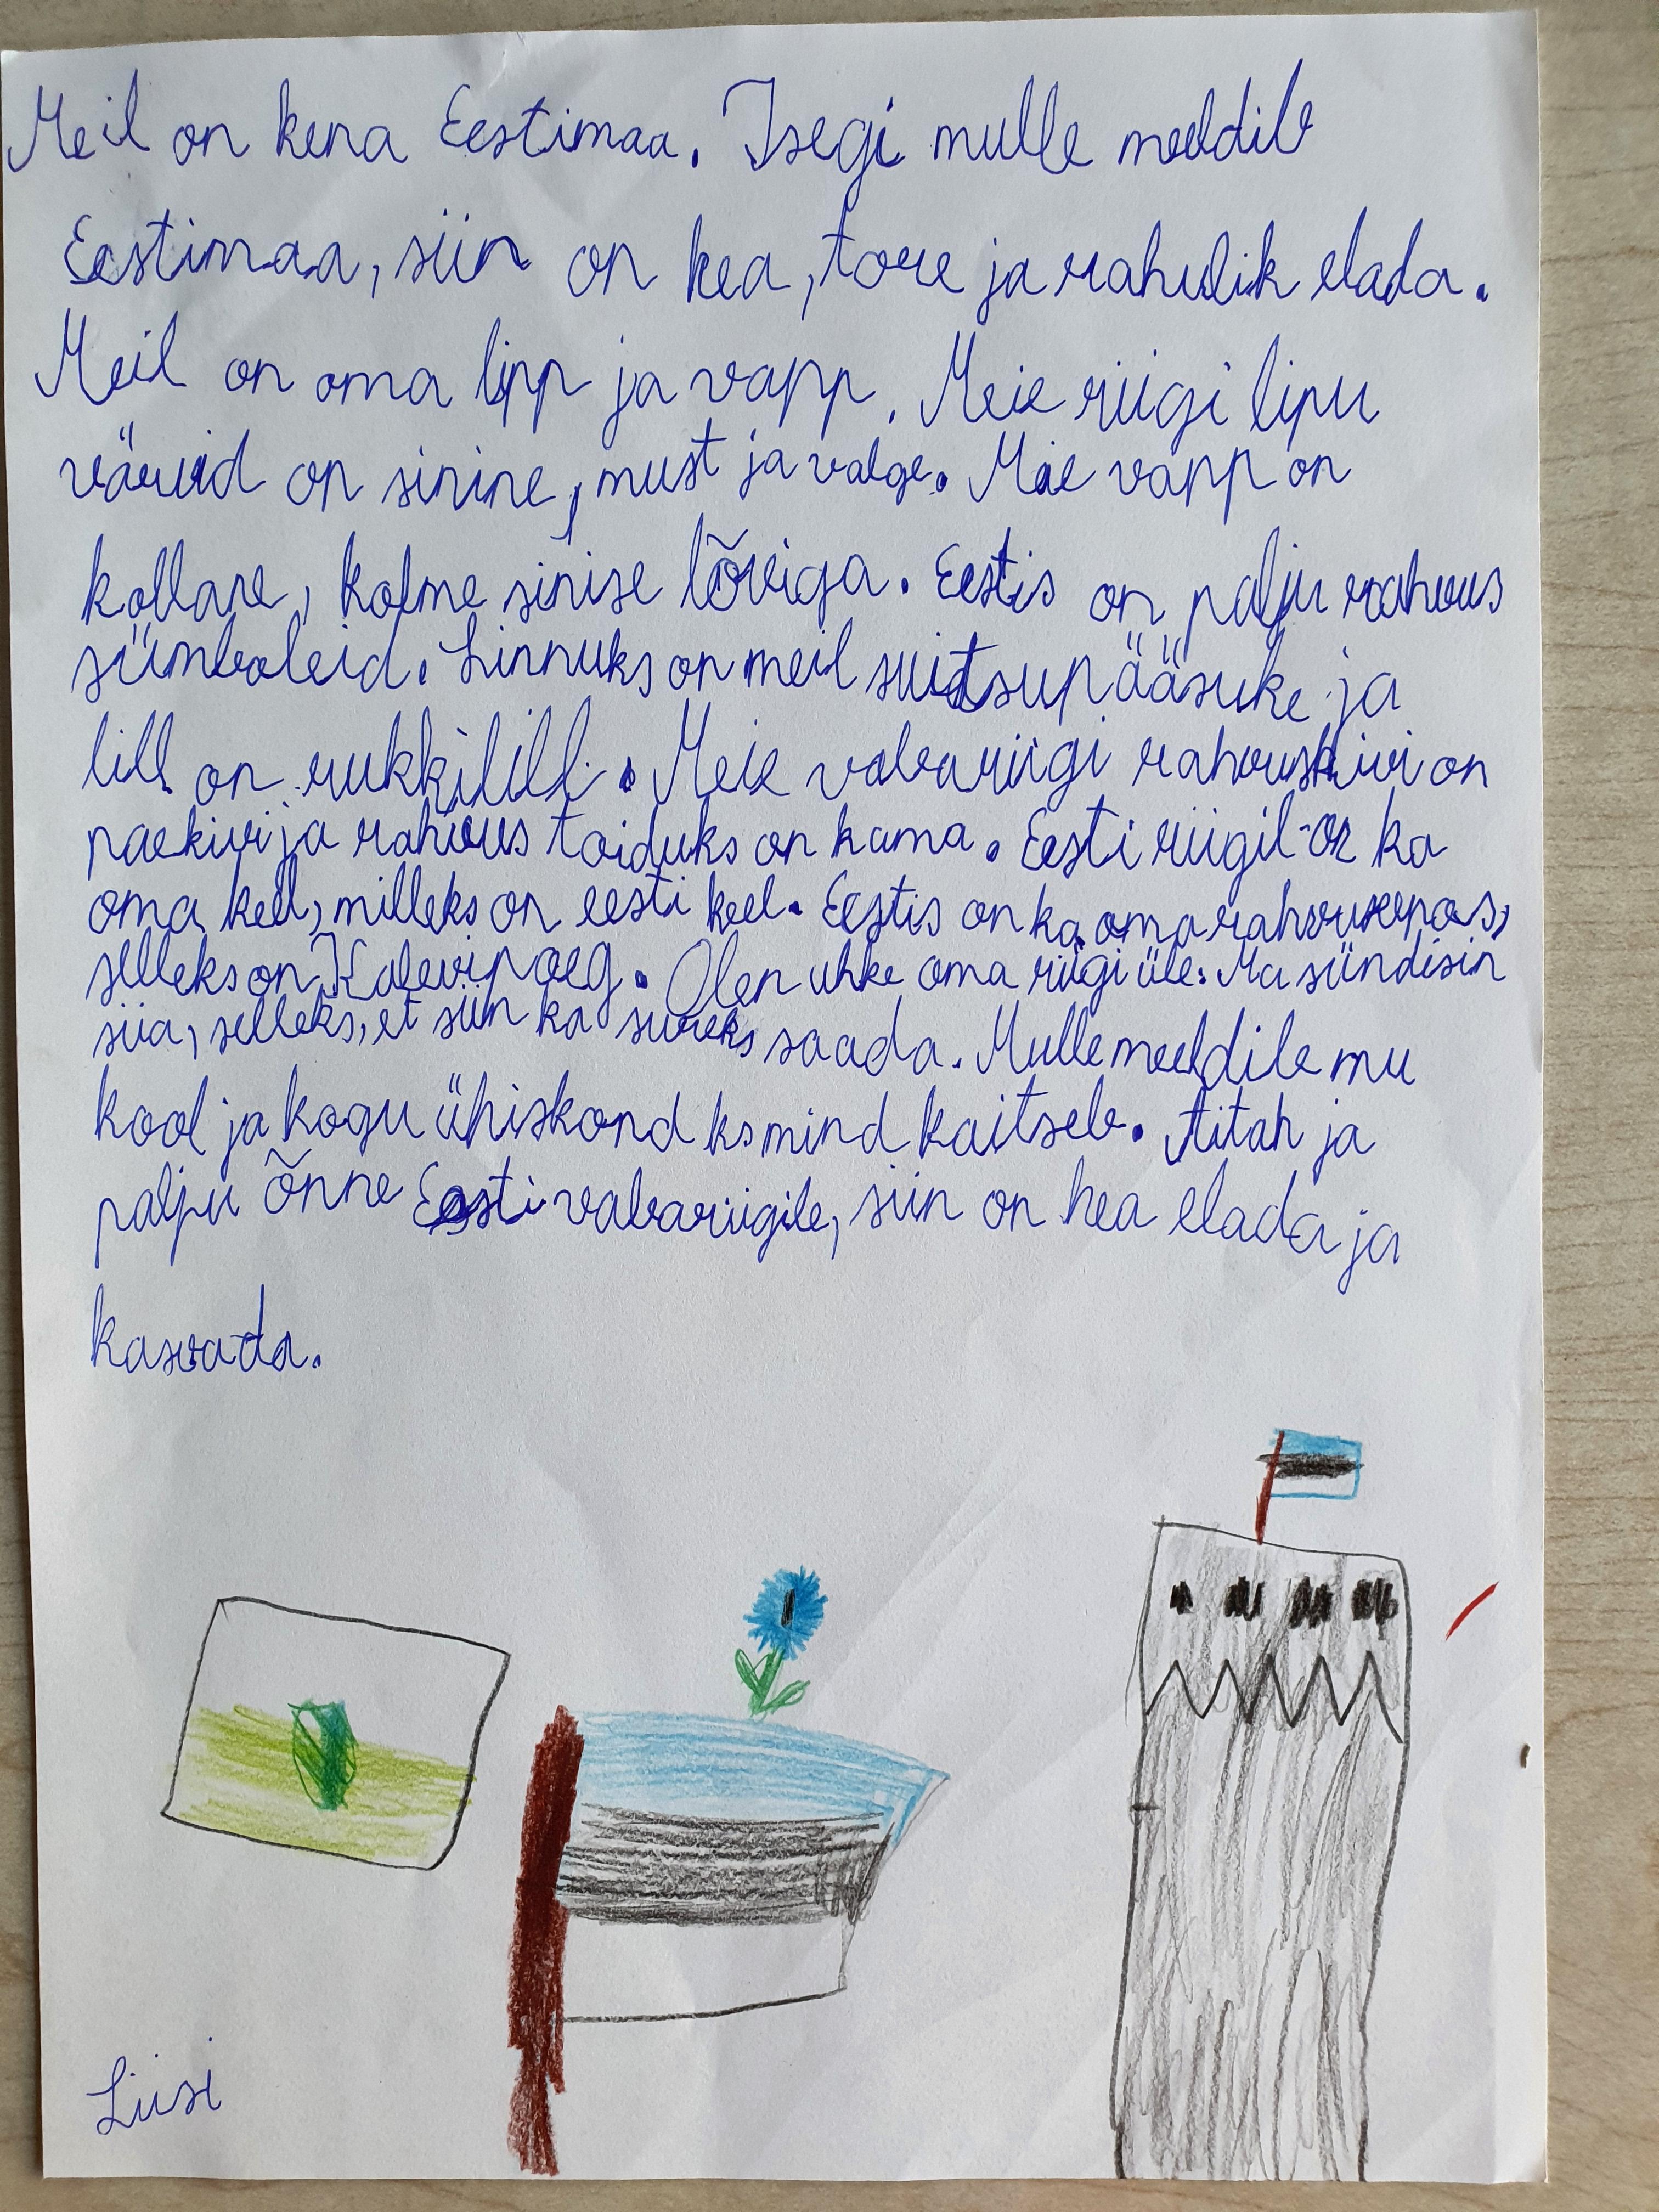 Meil on kena Eestimaa. Isegi mulle meeldib
Eestimaa, siin on hea, tore ja rahulik elada.
Meil on oma lipp ja vapp. Meie riigi lipu
värvid on sinine, must ja valge. Meie vapp on
kollane, kolme sinise lõviga. Eestis on palju rahvus
sümboleid. Linnuks on meil suitsupääsuke ja
lill on rukkilill. Meie vabariigi rahvuskivi on
paekivi ja rahvus toiduks on kama. Eesti riigil on ka
oma keel, milleks on eesti keel. Eestis on ka oma rahvuseepos,
selleks on Kalevipoeg. Olen uhke oma riigi üle. Ma sündisin
siia, selleks, et siin ka suureks saada. Mulle meeldib mu
kool ja kogu ühiskond ks mind kaitseb. Aitäh ja
palju õnne Eesti vabariigile, siin on hea elada ja
kasvada.
Liisi